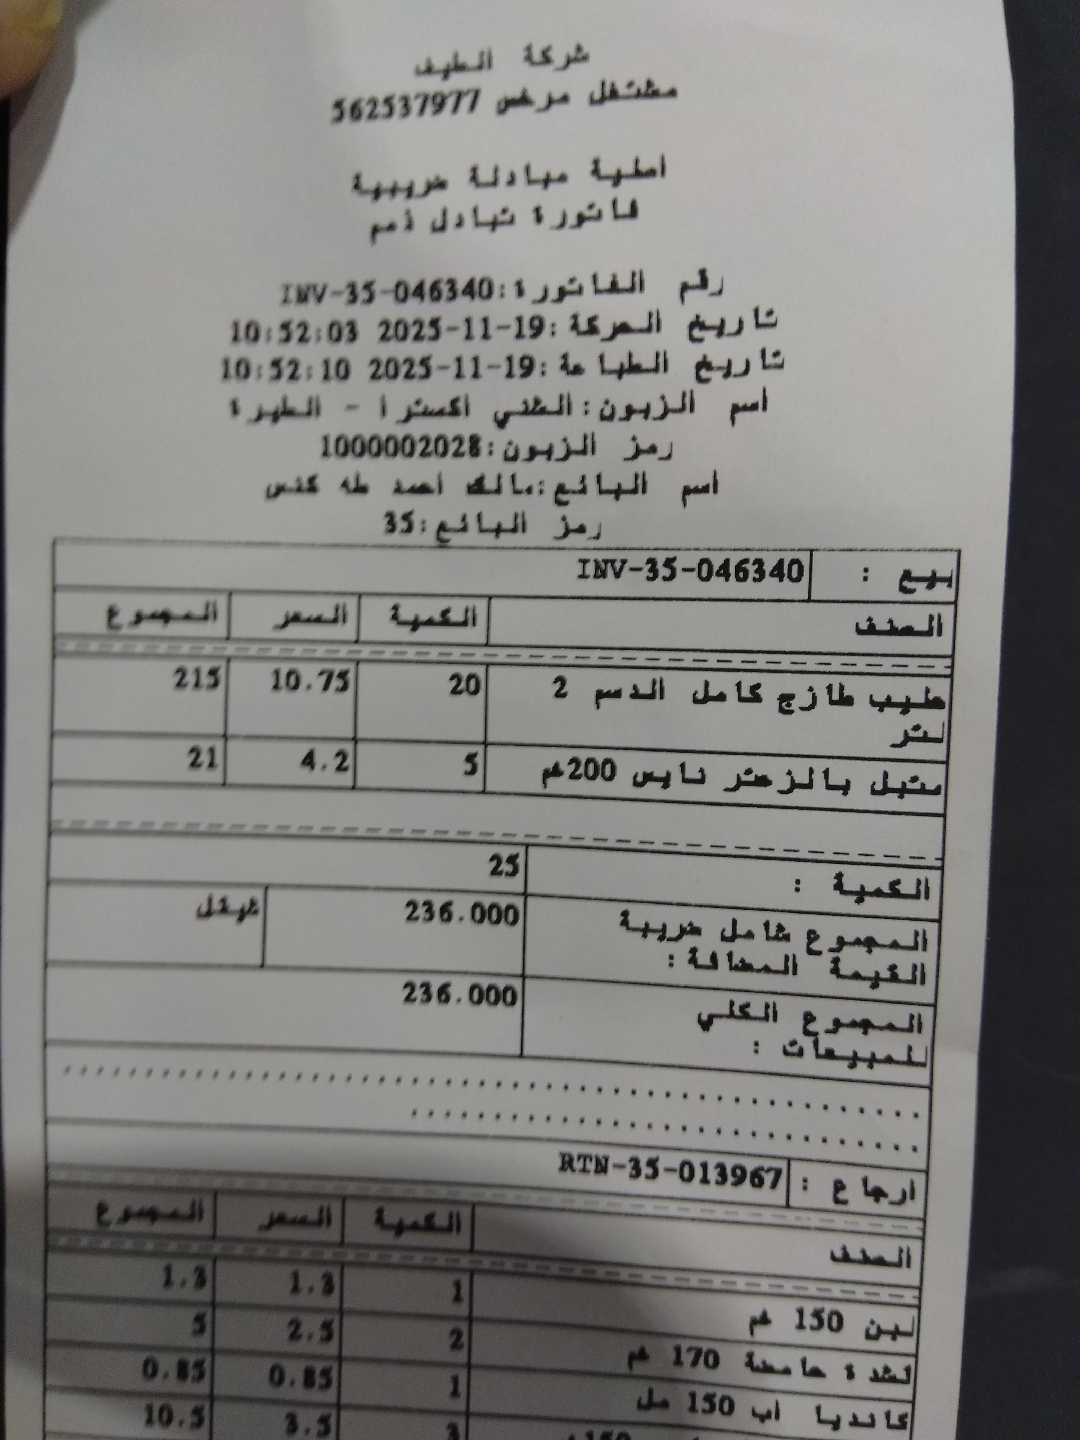 شركة الطيف
مشتغل مرخص 562537977
اصلية مبادلة ضريبية
فاتورة تبادل ذمم
رقم الفاتورة:INV-35-046340
تاريخ الحركة:19-11-2025 10:52:03
تاريخ الطباعة:19-11-2025 10:52:10
اسم الزبون:الشني اكسترا - الطيرة
رمز الزبون:1000002028
اسم البائع:مالك احمد طه كنس
رمز البائع:35
بيع : INV-35-046340
الصنف الكمية السعر المجموع
حليب طازج كامل الدسم 2 20 10.75 215
لتر
متبل بالزعتر نايس 200غم 5 4.2 21
الكمية : 25
المجموع شامل ضريبة 236.000 شيقل
القيمة المضافة:
المجموع الكلي 236.000
للمبيعات :
ارجاع : RTN-35-013967
الصنف الكمية السعر المجموع
لبن 150 غم 1 1.3 1.3
لشدة حامضة 170 غم 2 2.5 5
كانديا أب 150 مل 1 0.85 0.85
3 3.5 10.5